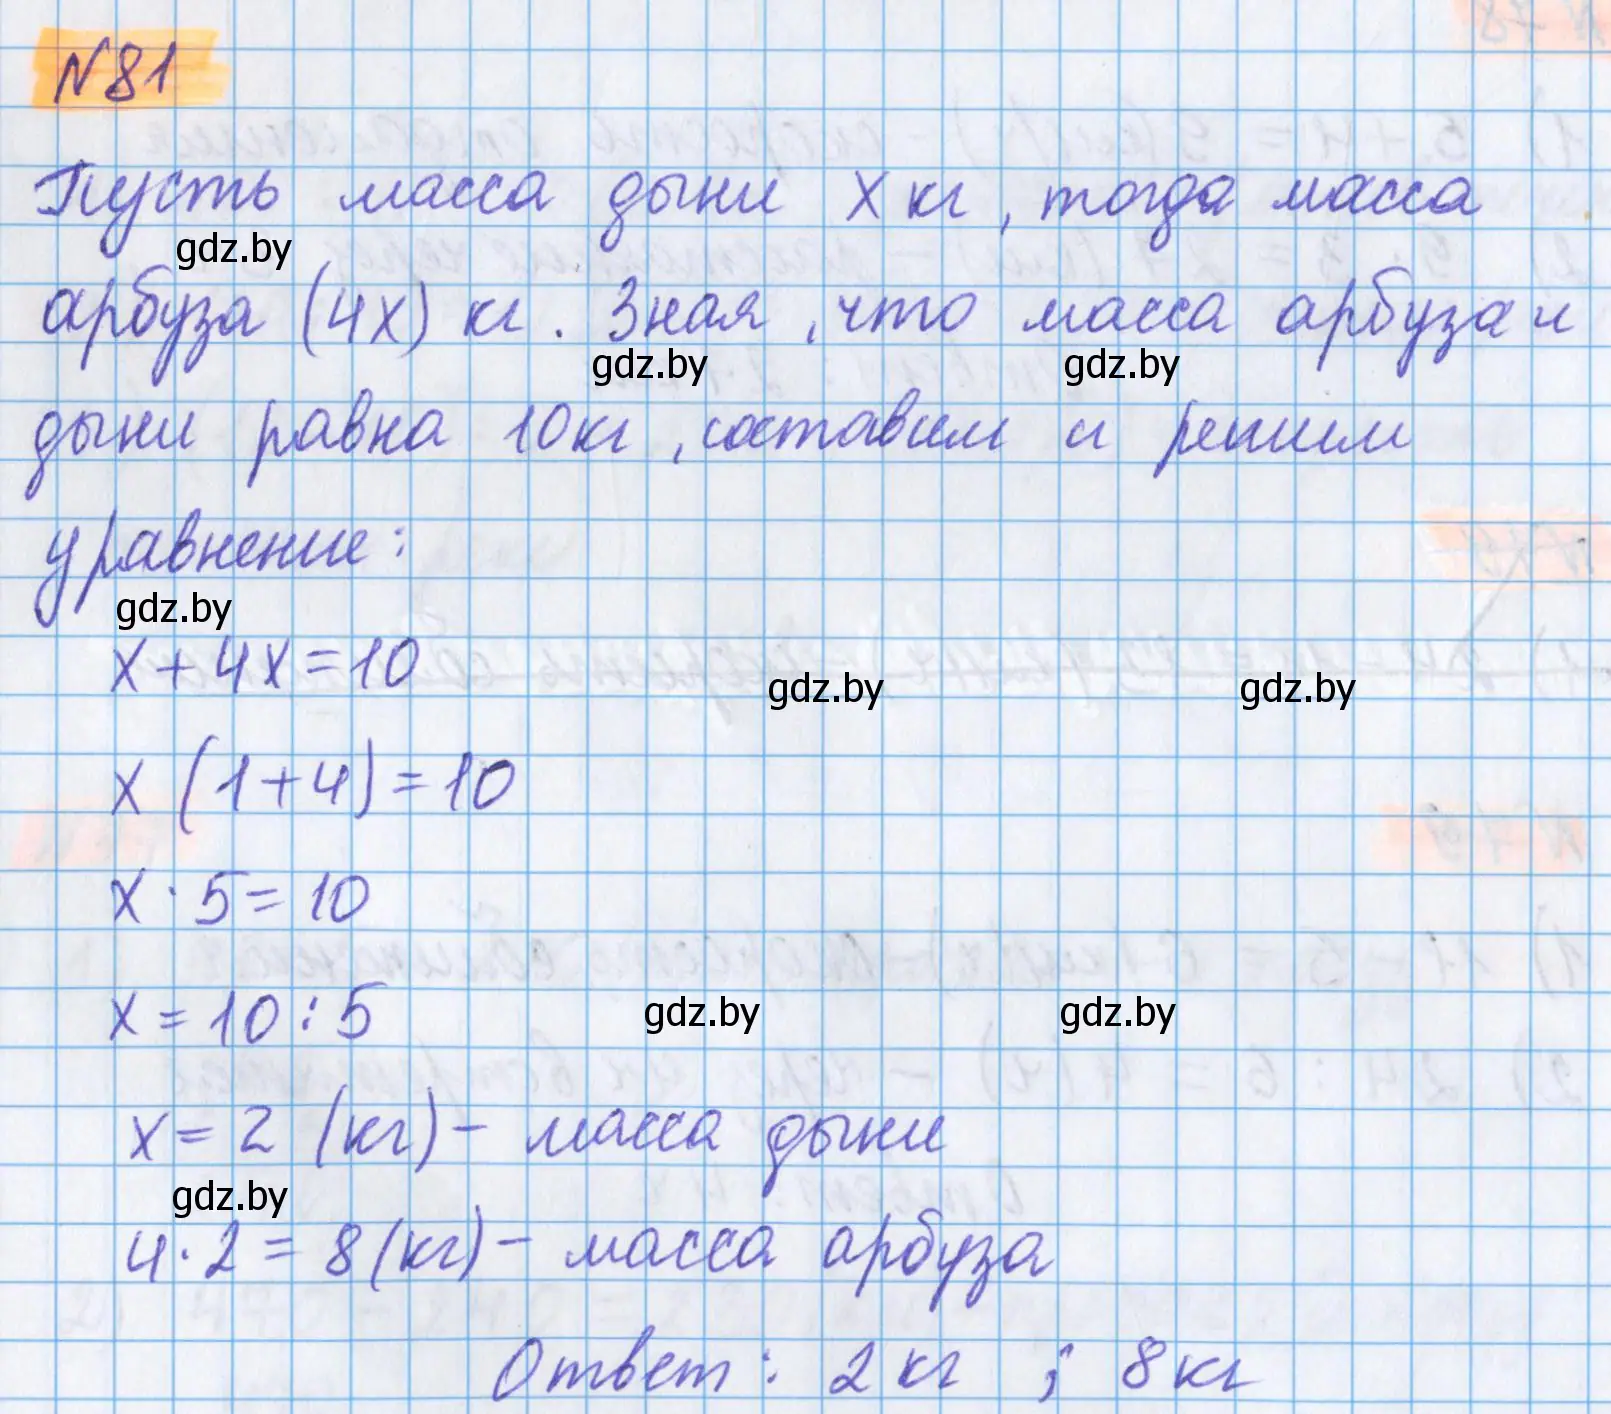 N81
Пусть масса дыни x кг, тогда масса
gdz.by
арбуза (4x) кг. Зная, что масса арбуза и
gdz.by gdz.by
дыни равна 10кг, составим и решим
уравнение:
gdz.by
x+4x=10
gdz.by gdz.by
x (1+4)=10
x·5=10
x=10:5
gdz.by gdz.by
x=2 (кг) - масса дыни
gdz.by
4·2=8(кг) - масса арбуза
Ответ: 2кг ; 8кг